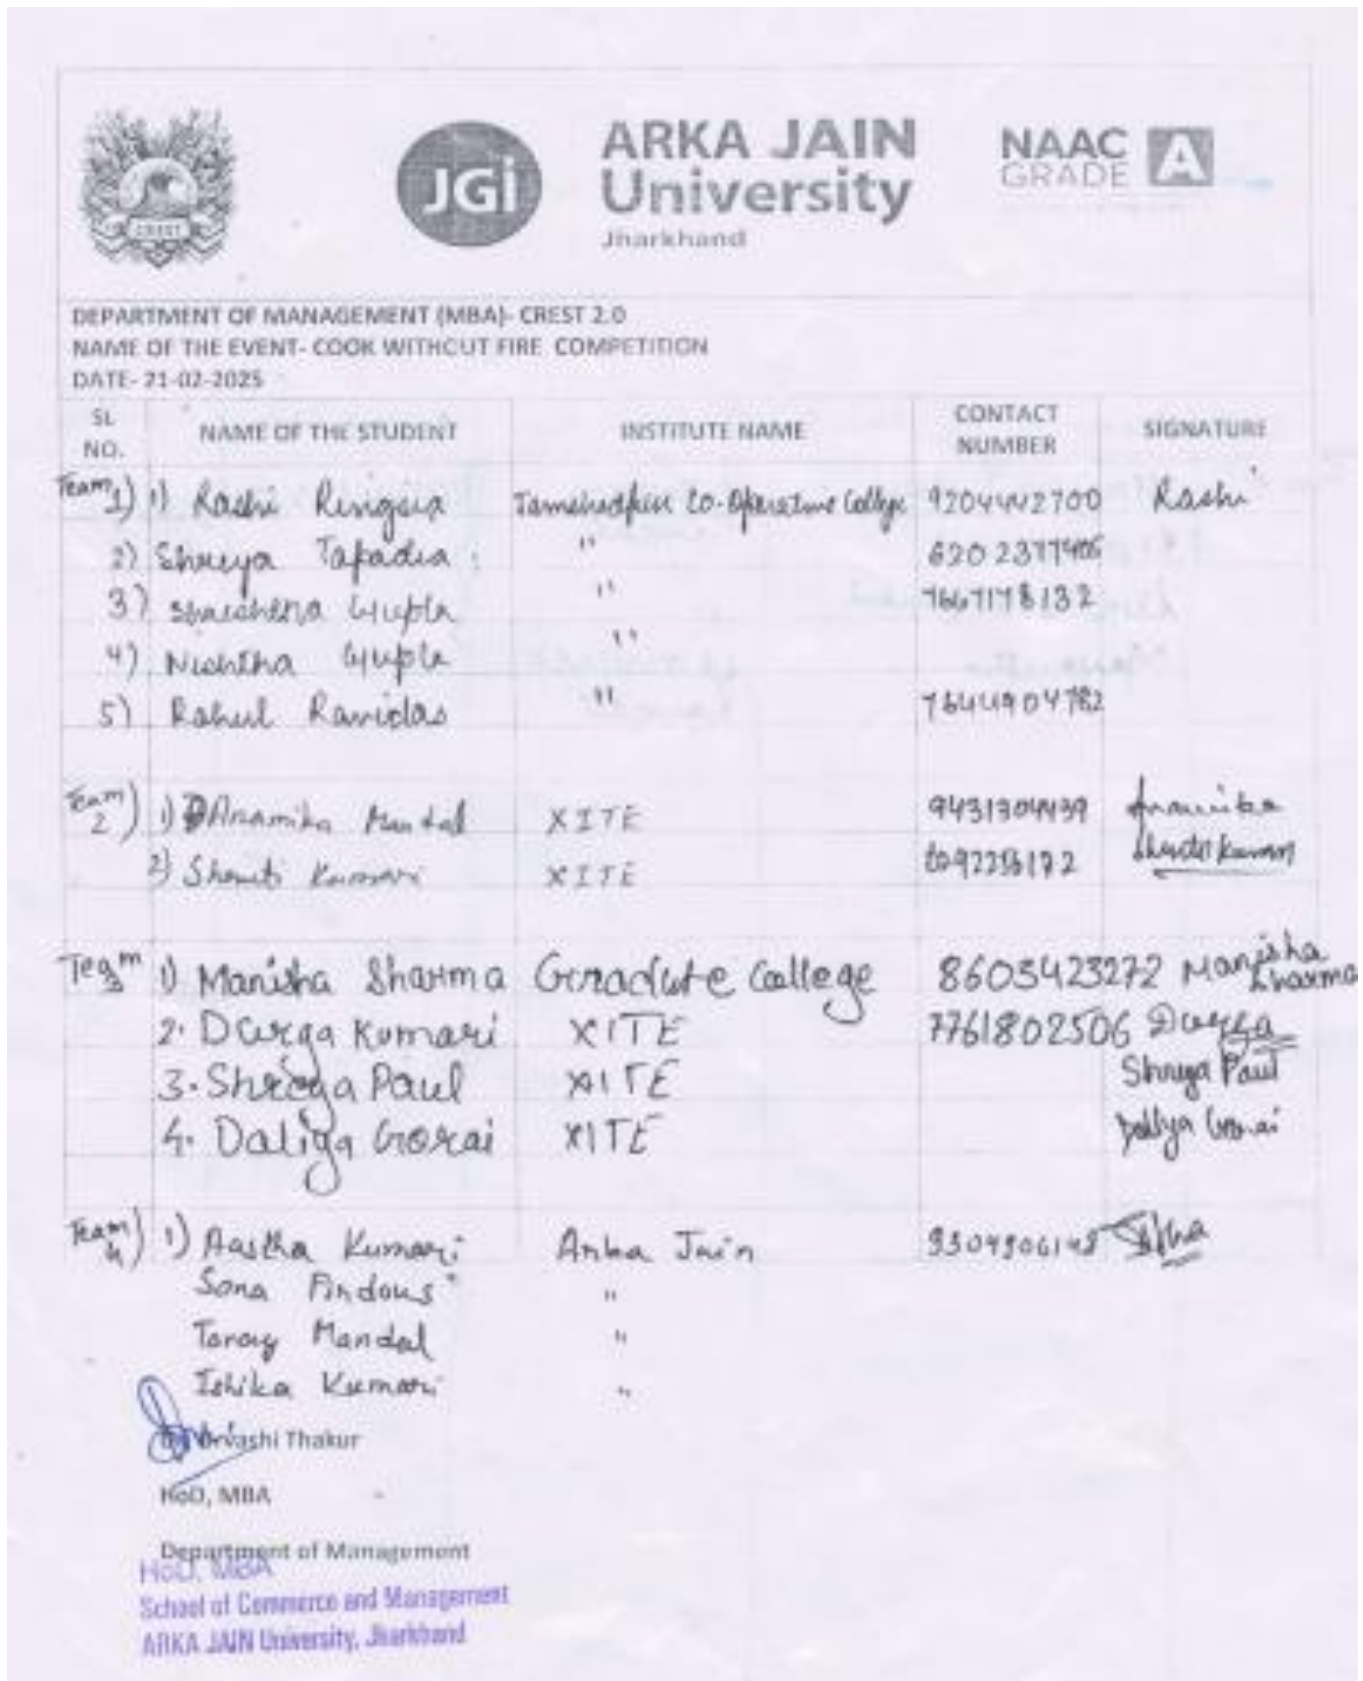 CREST
JGi
ARKA JAIN
University
Jharkhand
NAAC
GRADE A
DEPARTMENT OF MANAGEMENT (MBA)- CREST 2.0
NAME OF THE EVENT- COOK WITHOUT FIRE COMPETITION
DATE- 21-02-2025
SL NO. NAME OF THE STUDENT INSTITUTE NAME CONTACT NUMBER SIGNATURE
Team 1) 1) Rashi Ringsia Jamshedpur Co-Operative College 9204442700 Rashi
2) Shreya Tapadia "
3) Gupta " 7667178132
4) Nishtha Gupta "
5) Rahul Ravidas " 7644904782
Team 2) 1) Anamika Mandal XITE 9431304439 Anamika
2) Kumari XITE Kumari
Team 3 1) Manisha Sharma Graduate College 8603423272 Manisha Sharma
2. Durga Kumari XITE 7761802506 Durga
3. Shreya Paul XITE Shreya Paul
4. Daliya Gorai XITE Daliya Gorai
Team 4) 1) Aastha Kumari Arka Jain
Sona Firdous "
Mandal "
Ishika Kumari "
Urvashi Thakur
HoD, MBA
Department of Management
HoD, MBA
School of Commerce and Management
ARKA JAIN University, Jharkhand